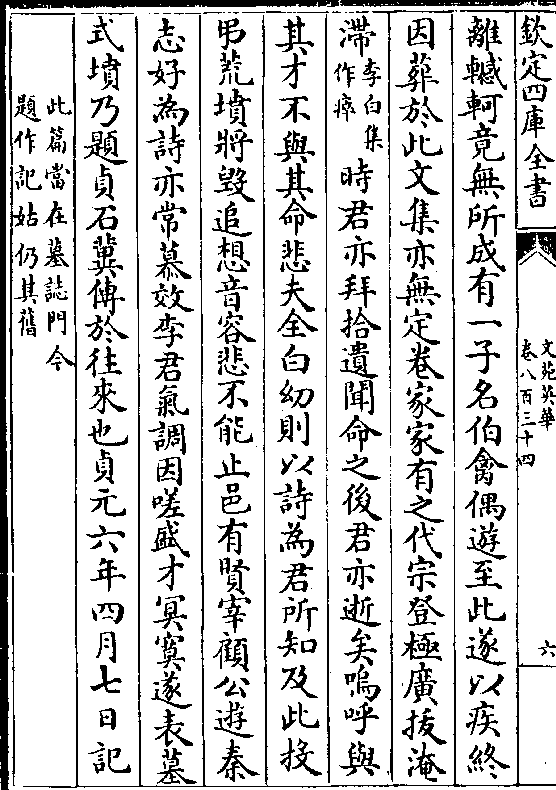 欽定四庫全書
文苑英華
卷八百三十四
六
離轗軻竟無所成有一子名伯禽偶遊至此遂以疾終
因葬於此文集亦無定卷家家有之代宗登極廣拔淹
滯李白集作瘵時君亦拜拾遺聞命之後君亦逝矣嗚呼與
其才不與其命悲夫全白幼則以詩為君所知及此投
弔荒墳將毀追想音容悲不能止邑有賢宰顧公遊秦
志好為詩亦常慕效李君氣調因嗟盛才冥寞遂表墓
式墳乃題貞石冀傳於往來也貞元六年四月七日記
此篇當在墓誌門今
題作記姑仍其舊